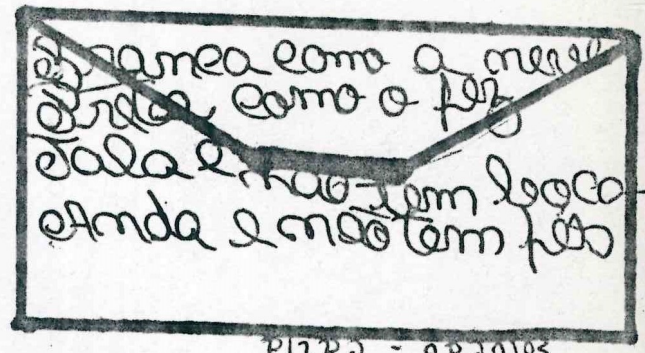 Branca como a neve
Preta como o pez
Fala e não tem boca
Anda e não tem pés